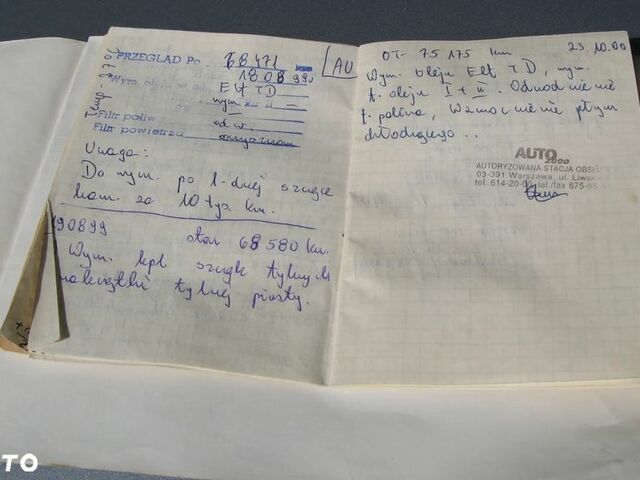 PRZEGLĄD Po 68 471 km
18.08.99
Wym. oleju w sil. Elf TD
wym
Filtr paliw. odw.
Filtr powietrza
Uwaga:
Do wym. po 1-dnej szczęce
ham. za 10 tys. km.
190899 stan 68 580 km.
Wym. kpl szczęk tylnych
tylnej piasty.
AU
OT- 75 175 km 23.10.00
Wym. oleju Elf TD, wym.
f. oleju I + II. Odwodnienie
f. paliwa, Wzmocnienie płynu
chłodzącego..
AUTO 2000
AUTORYZOWANA STACJA OBSŁU
03-391 Warszawa, ul. Liws
tel. 614-20-00 tel./fax 675-95
TO